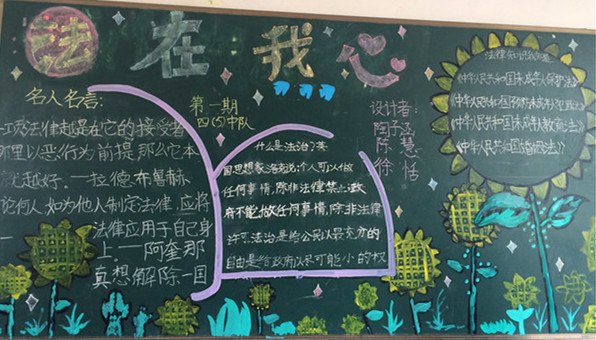 法在我心
名人名言:
一项法律越是在它的接受者
那里以恶行为前提,那么它本
就越好.—拉德布鲁赫
论何人,如为他人制定法律,应将
一 法律应用于自己身
上——阿奎那
真想解除一国
第一期
四(5)中队
什么是法治?英
国思想家洛克说:个人可以做
任何事情,除非法律禁止;政
府不能做任何事情,除非法律
许可.法治是给公民以最充分的
自由,是给政府以尽可能小的权
设计者:
陶子涵
陈慧
徐恬
《中华人民共和国未成年人保护法》
《中华人民共和国预防未成年人犯罪法》
《中华人民共和国教育法》
《中华人民共和国婚姻法》